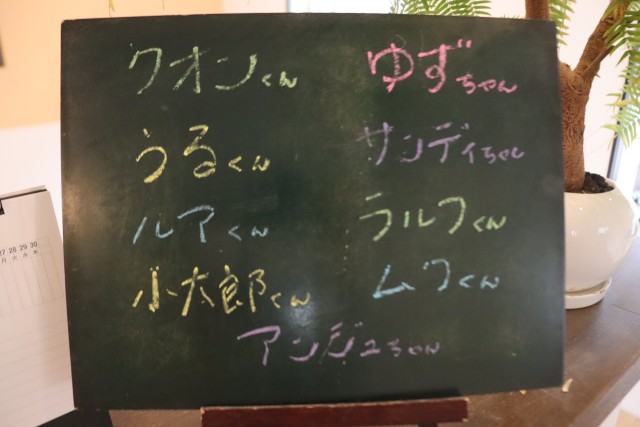 クオンくん ゆずちゃん
うるくん サンディちゃん
ルアくん ラルフくん
小太郎くん ムクくん
アンジュちゃん
27 28 29 30
月 火 水 木